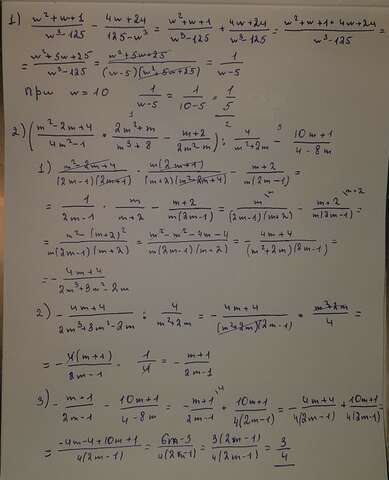 1) (w²+w+1)/(w³-125) - (4w+24)/(125-w³) = (w²+w+1)/(w³-125) + (4w+24)/(w³-125) = (w²+w+1+4w+24)/(w³-125) =
= (w²+5w+25)/(w³-125) = (w²+5w+25)/((w-5)(w²+5w+25)) = 1/(w-5)
При w=10 1/(w-5) = 1/(10-5) = 1/5
2) ((m²-2m+4)/(4m²-1) · (2m²+m)/(m³+8) - (m+2)/(2m²-m)) : 4/(m²+2m) - (10m+1)/(4-8m)
1) (m²-2m+4)/((2m-1)(2m+1)) · m(2m+1)/((m+2)(m²-2m+4)) - (m+2)/(m(2m-1)) =
= 1/(2m-1) · m/(m+2) - (m+2)/(m(2m-1)) = m/((2m-1)(m+2)) - (m+2)/(m(2m-1)) =
= (m²-(m+2)²)/(m(2m-1)(m+2)) = (m²-m²-4m-4)/(m(2m-1)(m+2)) = -(4m+4)/((m²+2m)(2m-1)) =
= -(4m+4)/(2m³+3m²-2m)
2) -(4m+4)/(2m³+3m²-2m) : 4/(m²+2m) = -(4m+4)/((m²+2m)(2m-1)) · (m²+2m)/4 =
= -4(m+1)/(2m-1) · 1/4 = -(m+1)/(2m-1)
3) -(m+1)/(2m-1) - (10m+1)/(4-8m) = -(m+1)/(2m-1) + (10m+1)/(4(2m-1)) = -(4m+4)/(4(2m-1)) + (10m+1)/(4(2m-1)) =
= (-4m-4+10m+1)/(4(2m-1)) = (6m-3)/(4(2m-1)) = 3(2m-1)/(4(2m-1)) = 3/4